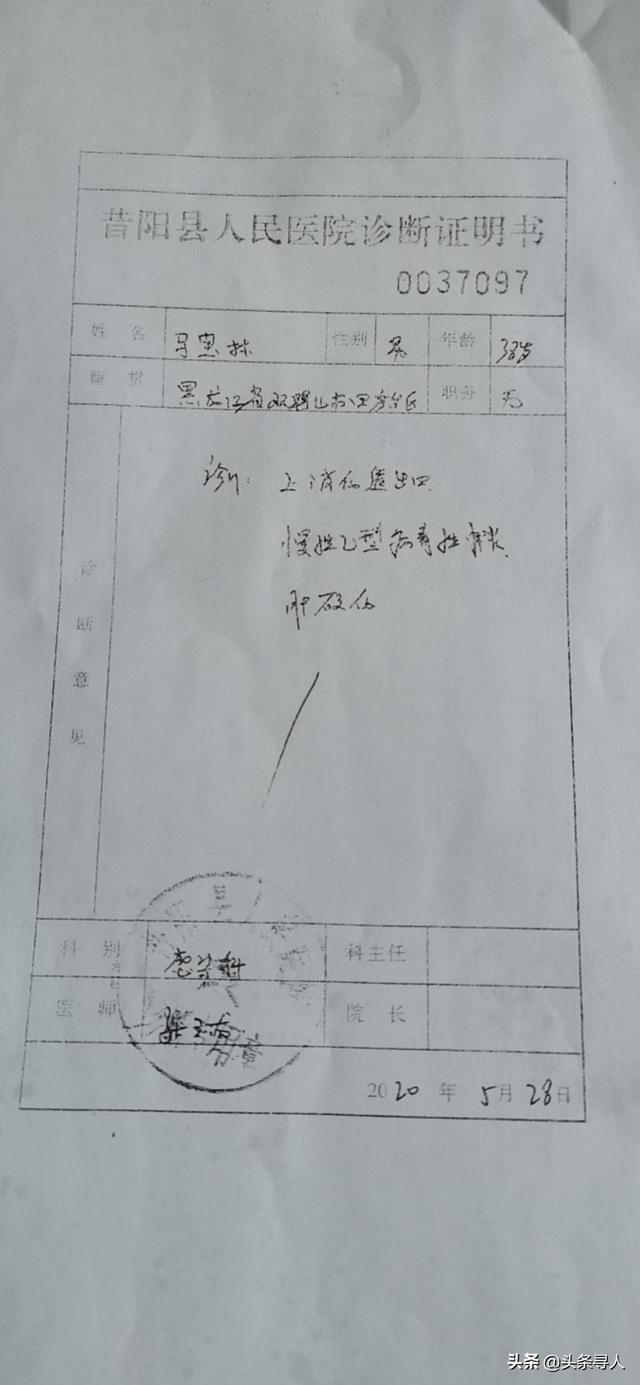 昔阳县人民医院诊断证明书
0037097
姓名 马忠林 性别 男 年龄 38岁
籍贯 黑龙江省双鸭山市四方台区 职务 无
诊断意见
诊: 上消化道出口
慢性乙型病毒性肝炎
肝硬化
科别 感染科 科主任
医师 院长
分章
2020年5月28日
头条 @头条寻人